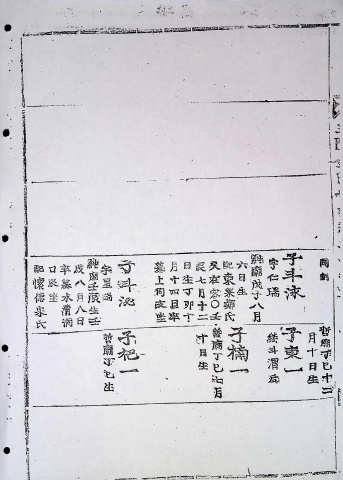 子斗洙
字仁瑞
純廟戊子八月
六日生
配東萊鄭氏
父在宏○壬
辰七月十二
日生丁卯十
月十四日卒
墓上同亥坐
子斗泌
字呈瑞
純廟壬辰生壬
戌八月八日
卒墓水漕洞
口辰坐
配懷德宋氏
哲廟丁巳十二
月十日生
子東一
斗渭后
子楠一
哲廟丁巳月
十日生
子杞一
哲廟丁巳生